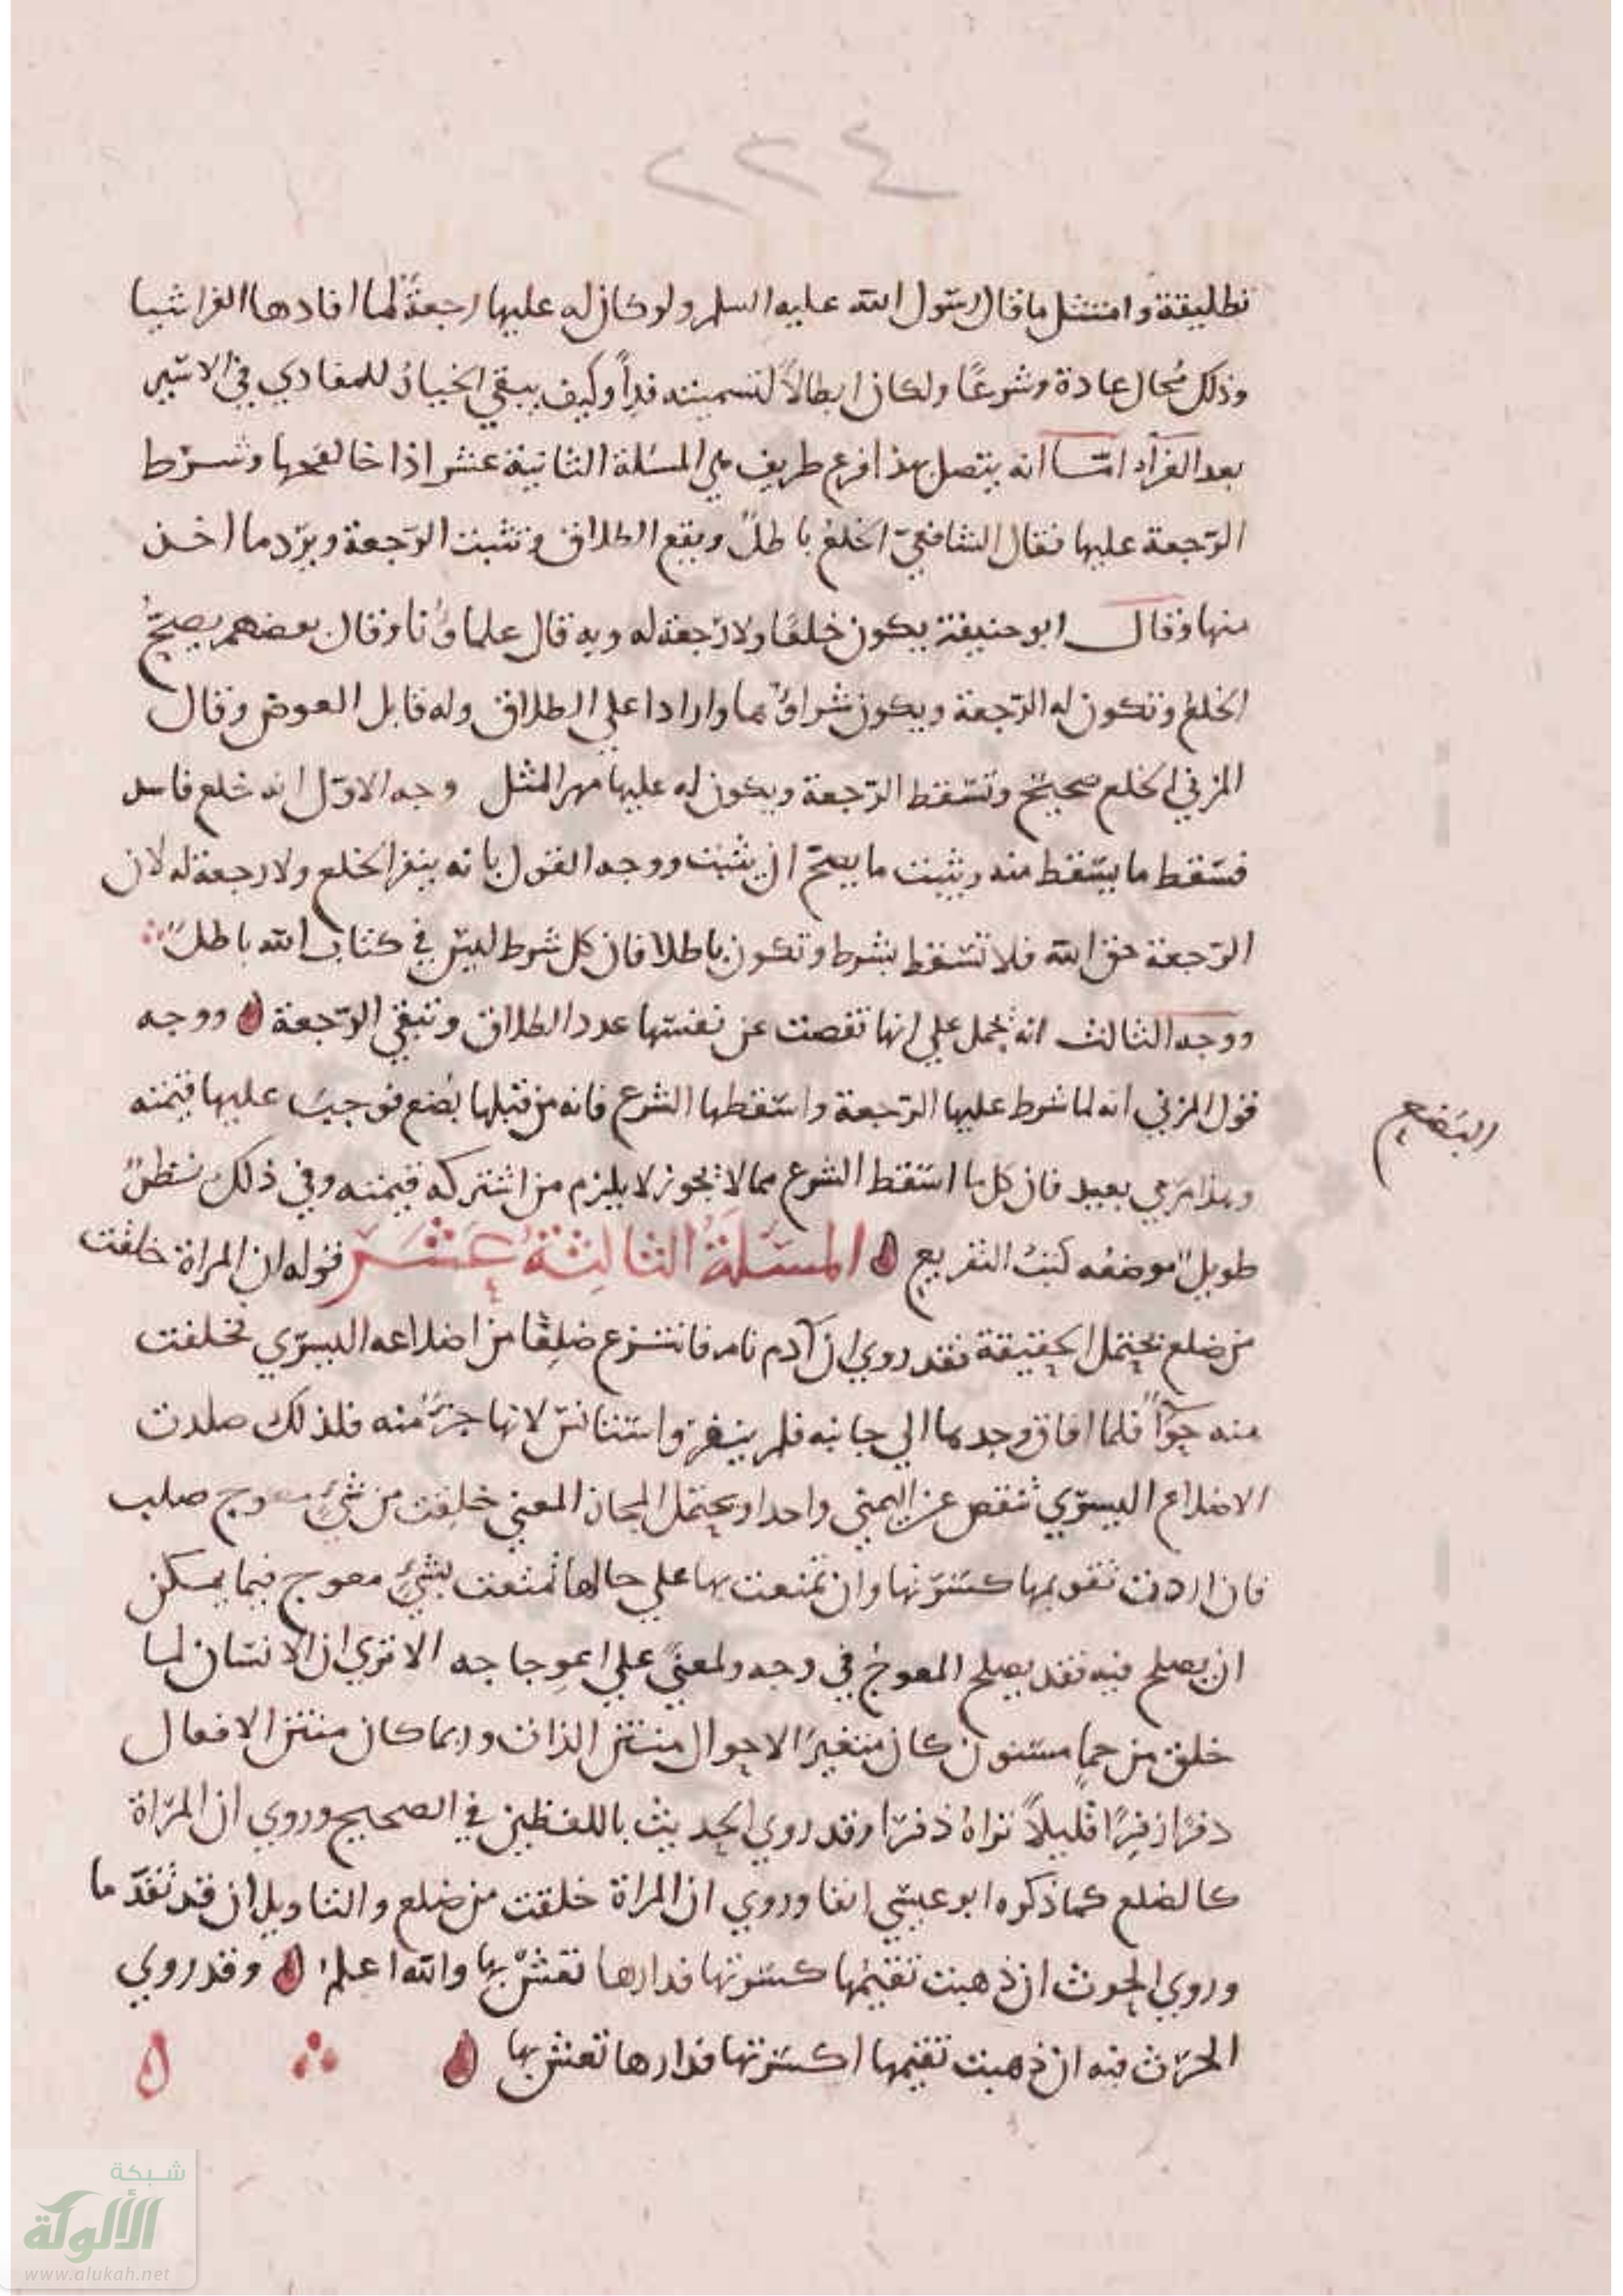 ٢٢٤
تطليقة وامتثل ما قال رسول الله عليه السلم ولو كان له عليها رجعةً لما افادها الفرا شيا
وذلك مُحال عادة وشرعًا ولكان ابطالاً لتسميته فداً وكيف يبقي الخيارُ للمفادي في الاسير
بعد الفرآد امّا انه يتصل بهذا فرع طريف هي المسئلة الثانية عشر اذا خالعها وشرط
الرّجعة عليها فقال الشافعيّ الخلعُ باطلٌ ويقع الطلاق وتثبت الرّجعة ويرّد ما اخذ
منها وقال ابو حنيفة يكون خلعًا ولا رّجعة له وبه قال علماؤُنا وقال بعضهم يصحُّ
الخلعُ وتكون له الرّجعة ويكون شراؤُهما وارادا علي الطلاق وله قابل العوض وقال
المزني الخلع صحيحٌ وتسقط الرّجعة ويكون له عليها مهر المثل وجه الاوّل انه خلع فاسد
فسقط ما يسقط منه ويثبت ما يصحّ ان يثبت ووجه القول بانه ينفز الخلع ولا رجعة له لان
الرّجعة حق الله فلا تسقط بشرط وتكون باطلا فان كل شرط ليس في كتاب الله باطلٌ
ووجه الثالث انه يُحمل علي انها نقصت عن نفسها عدد الطلاق وتبقي الرّجعة ووجه
قول المزني انه لما شرط عليها الرّجعة واسقطها الشرع فانه من قبلها بُضع فوجبت عليها قيمته
وهذا مرمي بعيد فان كل ما اسقط الشرع مما لا يجوز لا يلزم من اشتركه قيمته وفي ذلك نظرٌ
البَضع
طويلٌ موضعُه كتبُ التفريع المسئلةُ الثالثةُ عَشَر قوله ان المراة خلقت
من ضلع يحتمل الحقيقة فقد روي ان آدم نام فانتزع ضلِعًا من اضلاعه اليسري فخلقت
منه حوّاً فلما افاق وجدها الي جانبه فلم ينفر واستانس لانها جزءٌ منه فلذلك صارت
الاضلاع اليسري تنقص عن اليمني واحدا ويحتمل المجاز المعني خلقت من شيٍ معوج صلب
فان اردت تقويمها كسرتها وان تمتعت بها علي حالها تمتعت بشيٍ معوج فيما يمكن
ان يصلح فيه فقد يصلح المعوجُ في وجه ولمعنيً علي اعوجاجه الا تري ان الانسان لما
خلق من حماٍ مسنون كان متغير الاحوال منتن الذات وربما كان منتن الافعال
ذفرًا زفِرًا قليلاً تراهُ ذفرًا وقد روي الحديث باللفظين في الصحيح وروي ان المراة
كالضلع كما ذكره ابو عيسي انفا وروي ان المراة خلقت من ضلع والتاويلان قد تقدّما
وروي الحرث ان ذهبت تقيمُها كسرتها فدارها تعشْ بها والله اعلمُ وقد روي
الحرث فيه ان ذهبت تقيمها اكسرتها فدارها تعش بها
شبكة
الألوكة
www.alukah.net